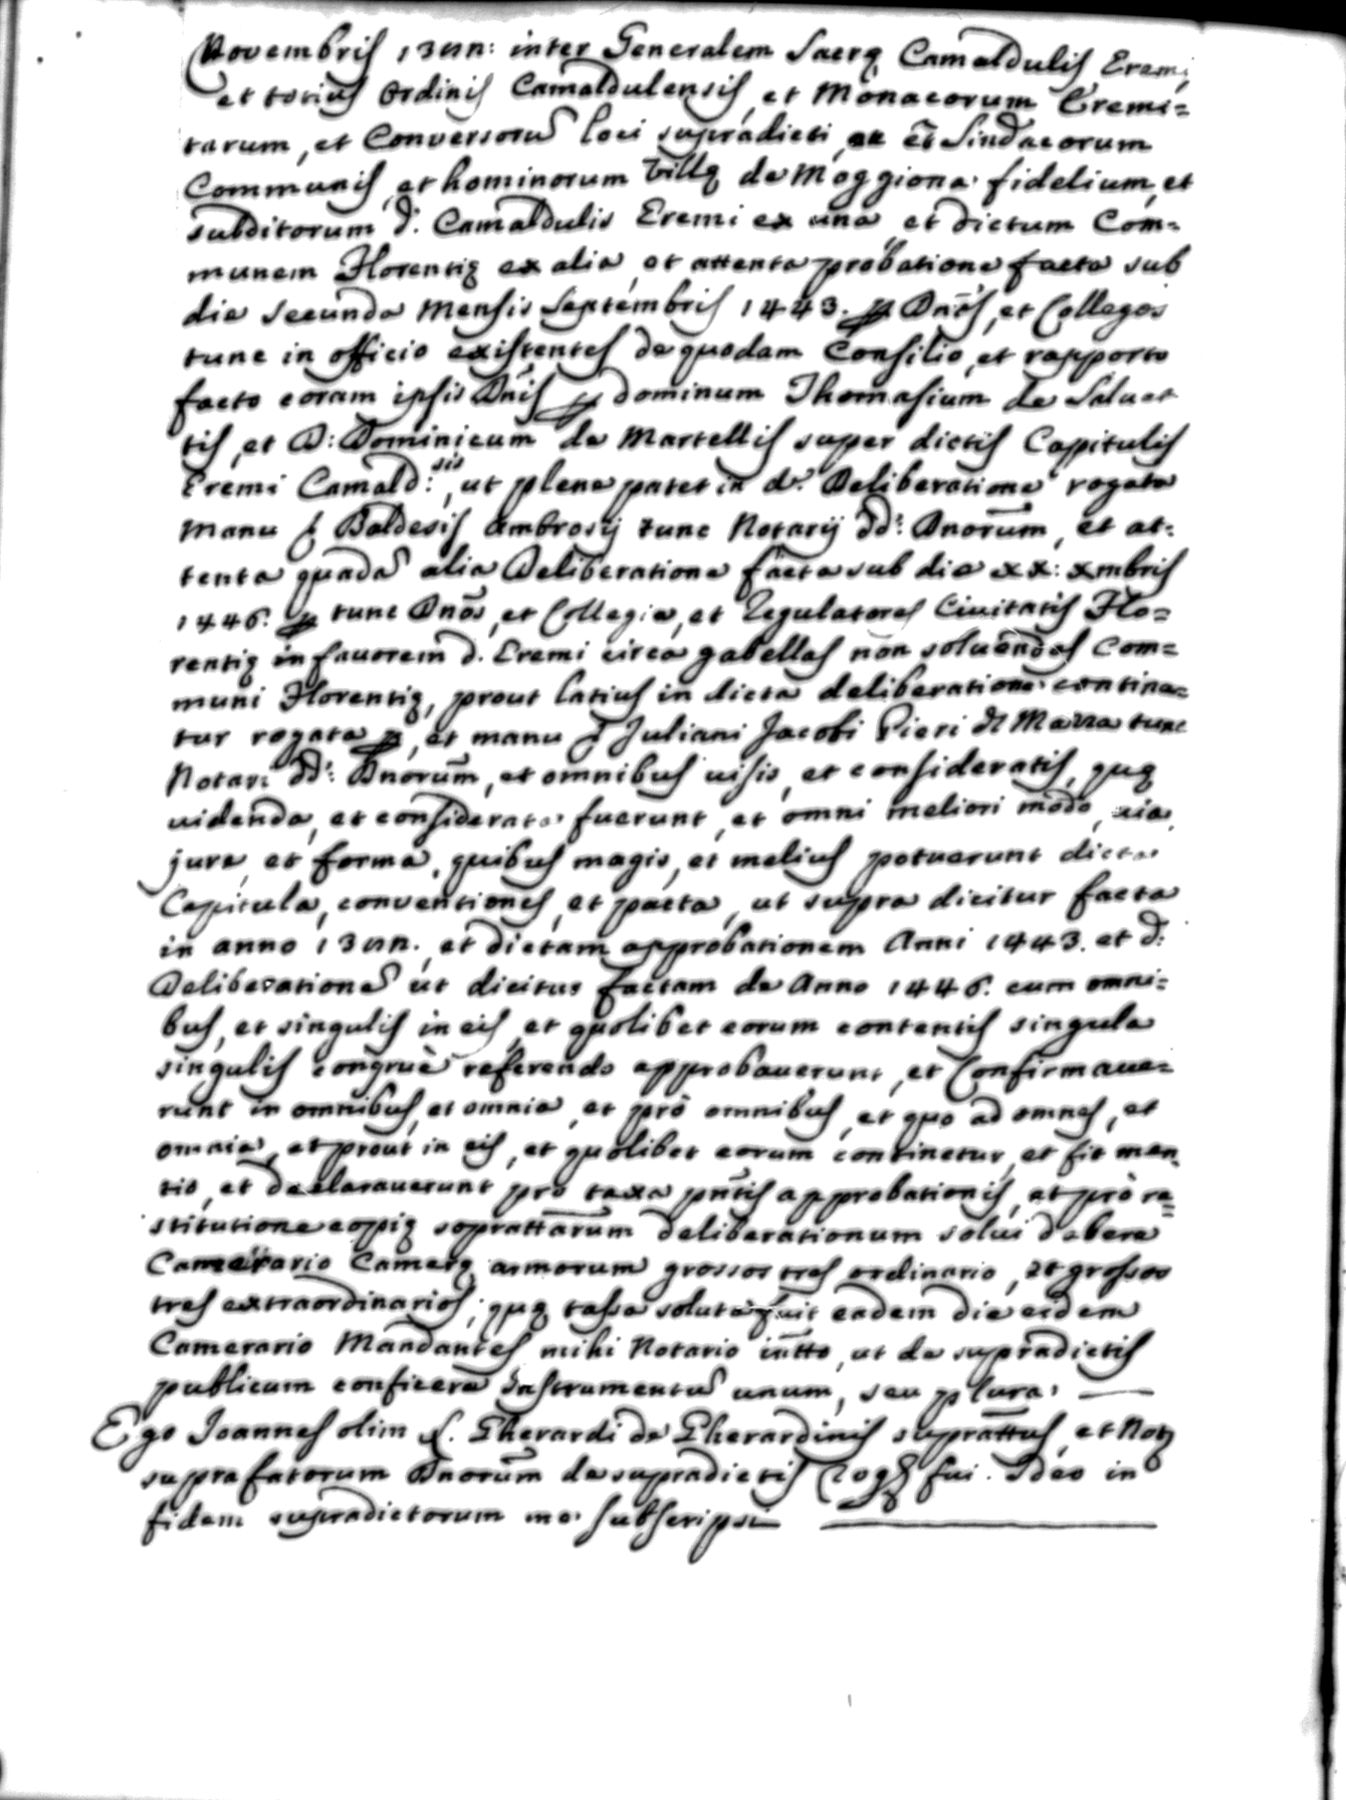 Novembris 13nn: inter Generalem Sacrę Camaldulis Eremi,
et totius Ordinis Camaldulensis, et Monacorum Eremi=
tarum, et Conversorū loci supradicti, et Sindacorum
Communis, et hominorum Villę de Moggiona fidelium, et
subditorum d: Camaldulis Eremi ex una, et dictum Com=
munem Florentię ex alia, et attenta probatione facta sub
die secunda Mensis Septembris 1443. p Dnōs, et Collegos
tunc in officio existentes de quodam Consilio, et rapporto
facto coram ipsis Dnīs p dominum Thomasium de Saluet
tis, et D: Dominicum de Martellis super dictis Capitulis
Eremi Camald:sis, ut plene patet in d.ª Deliberatione rogata
manu S Baldesis Ambrosij tunc Notarij dd: Dnorūm, et at=
tenta quadā alia Deliberatione facta sub die xx: xmbris
1446. p tunc Dnōs, et Collegia, et Regulatores Ciuitatis Flo=
rentię in fauorem d. Eremi circa gabellas non soluendas Com=
muni Florentię, prout latius in dicta deliberatione contine=
tur rogata p, et manu S Juliani Jacobi Pieri tunc
Notari dd: Dnorūm, et omnibus uisis, et consideratis, quę
uidenda, et considerata fuerunt, et omni meliori modo, uia,
jure, et forma, quibus magis, et melius potuerunt dicta
Capitula, conventiones, et pacta, ut supra dicitur facta
in anno 13nn., et dictam approbationem Anni 1443. et d:
Deliberationē ut dicitur factam de Anno 1446. cum omni=
bus, et singulis in eis, et quolibet eorum contentis singula
singulis congruè referendo approbauerunt, et Confirmaue=
runt in omnibus, et omnia, et prò omnibus, et quo ad omnes, et
omnia, et prout in eis, et quolibet eorum continetur, et fit men
tio, et declarauerunt pro taxa pn̄tis approbationis, et prò re=
stitutione copię soprattārum deliberationum solui debere
Camerario Camerę armorum grossos tres ordinario, et grossos
tres extraordinarios; quę tassa soluta fuit eadem die eidem
Camerario Mandantes mihi Notario in̄tto, ut de supradictis
publicum conficere Instrumentū unum, seu plura,
Ego Joannes olim S. Gherardi de Gherardinis suprāttus, et Notꝫ
suprafatorum Dnorūm de supradictis Rogs fui. Ideo in
fidem supradictorum me subscripsi